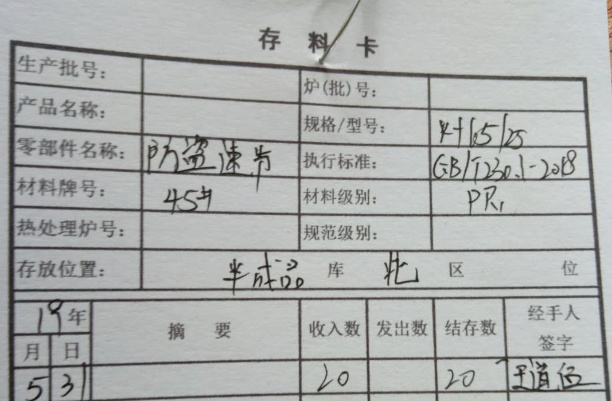 存料卡
生产批号： 炉(批)号：
产品名称： 规格/型号：
零部件名称： 防盗速节 执行标准： GB/T230.1-2018
材料牌号： 45# 材料级别： PR1
热处理炉号： 规范级别：
存放位置： 半成品 库 北 区 位
19年 摘 要 收入数 发出数 结存数 经手人签字
月 日
5 31 20 20 王道伍